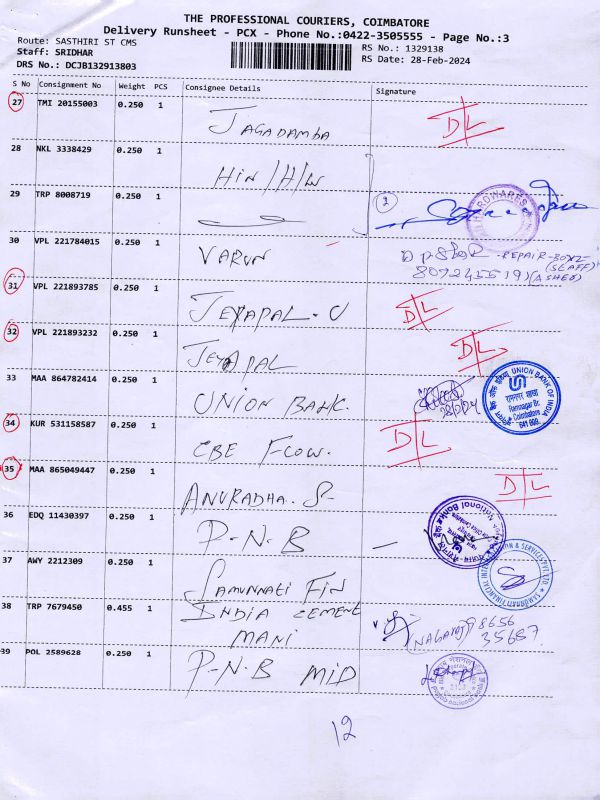 THE PROFESSIONAL COURIERS, COIMBATORE
Delivery Runsheet - PCX - Phone No.:0422-3505555 - Page No.:3
Route: SASTHIRI ST CMS
RS No.: 1329138
Staff: SRIDHAR
RS Date: 28-Feb-2024
DRS No.: DCJB132913803
S No Consignment No Weight PCS Consignee Details Signature
27 TMI 20155003 0.250 1 JAGADAMBA D/L
28 NKL 3338429 0.250 1 HIN/H/W
29 TRP 8008719 0.250 1
HARDWARES
30 VPL 221784015 0.250 1 VARUN
REPAIR-BOYZ
(STAFF)
31 VPL 221893785 0.250 1 JEYAPAL.U D/L
32 VPL 221893232 0.250 1 JEYAPAL D/L
33 MAA 864782414 0.250 1 UNION BANK. 28/2/24
यूनियन बैंक ऑफ इंडिया UNION BANK OF INDIA
रामनगर शाखा
Ramnagar Br.
Coimbatore
641 009.
34 KUR 531158587 0.250 1 CBE FLOW. D/L
35 MAA 865049447 0.250 1 ANURADHA.S D/L
36 EDQ 11430397 0.250 1 P.N.B -
National Bank
37 AWY 2212309 0.250 1 SAMUNNATI FIN
SAMUNNATI FINANCIAL INTERMEDIATION & SERVICES PVT LTD
38 TRP 7679450 0.455 1 INDIA CEMENT
MANI
NAGARAJ 98656
35687
39 POL 2589628 0.250 1 P.N.B MID
12